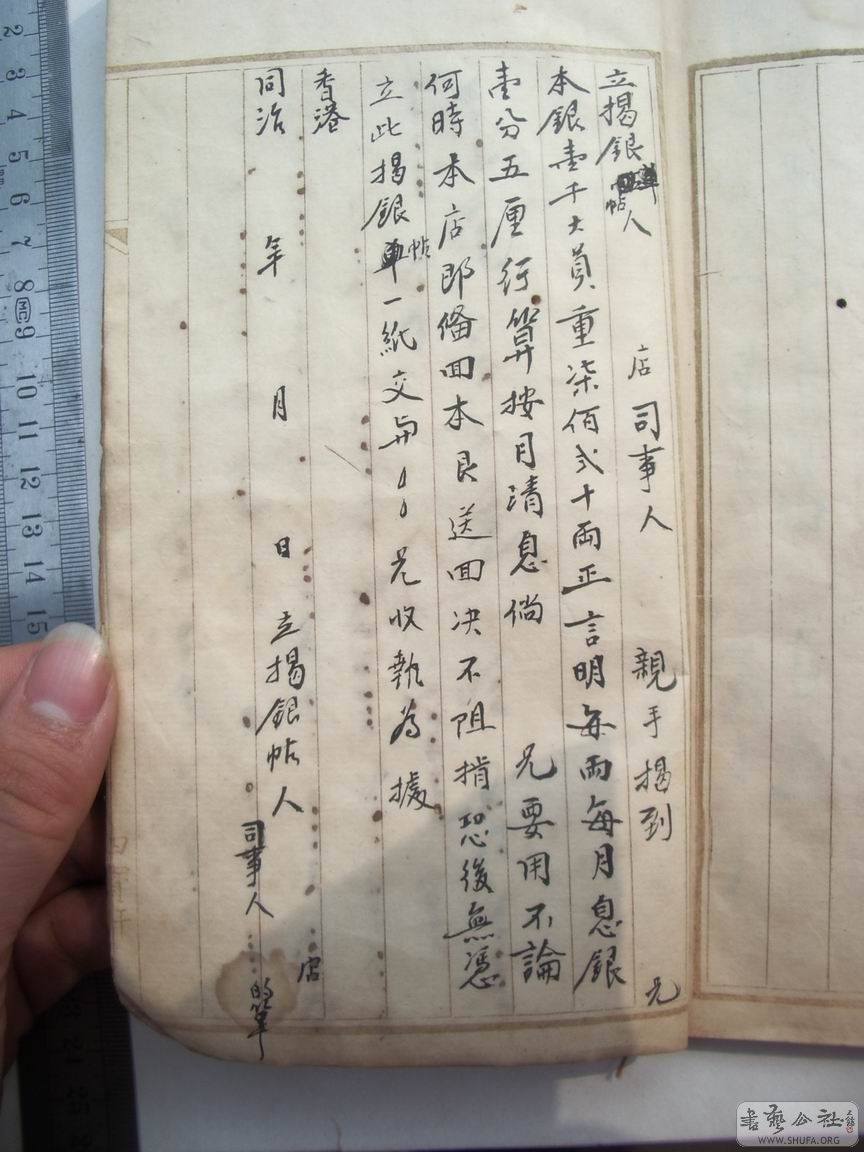 立揭銀帖人 店 司事人 親手揭到 兄
本銀壹千大員重柒佰弍十兩正言明每兩每月息銀
壹分五厘行算按月清息倘 兄要用不論
何時本店即俻回本艮送回决不阻揹恐後無憑
立此揭銀帖一紙交與 兄收執為據
香港 店
同治 年 月 日立揭銀帖人 司事人 的筆
2 3 4 5 6 7 8 9 10 11 12 13 14 15
MC
書藝公社
WWW.SHUFA.ORG